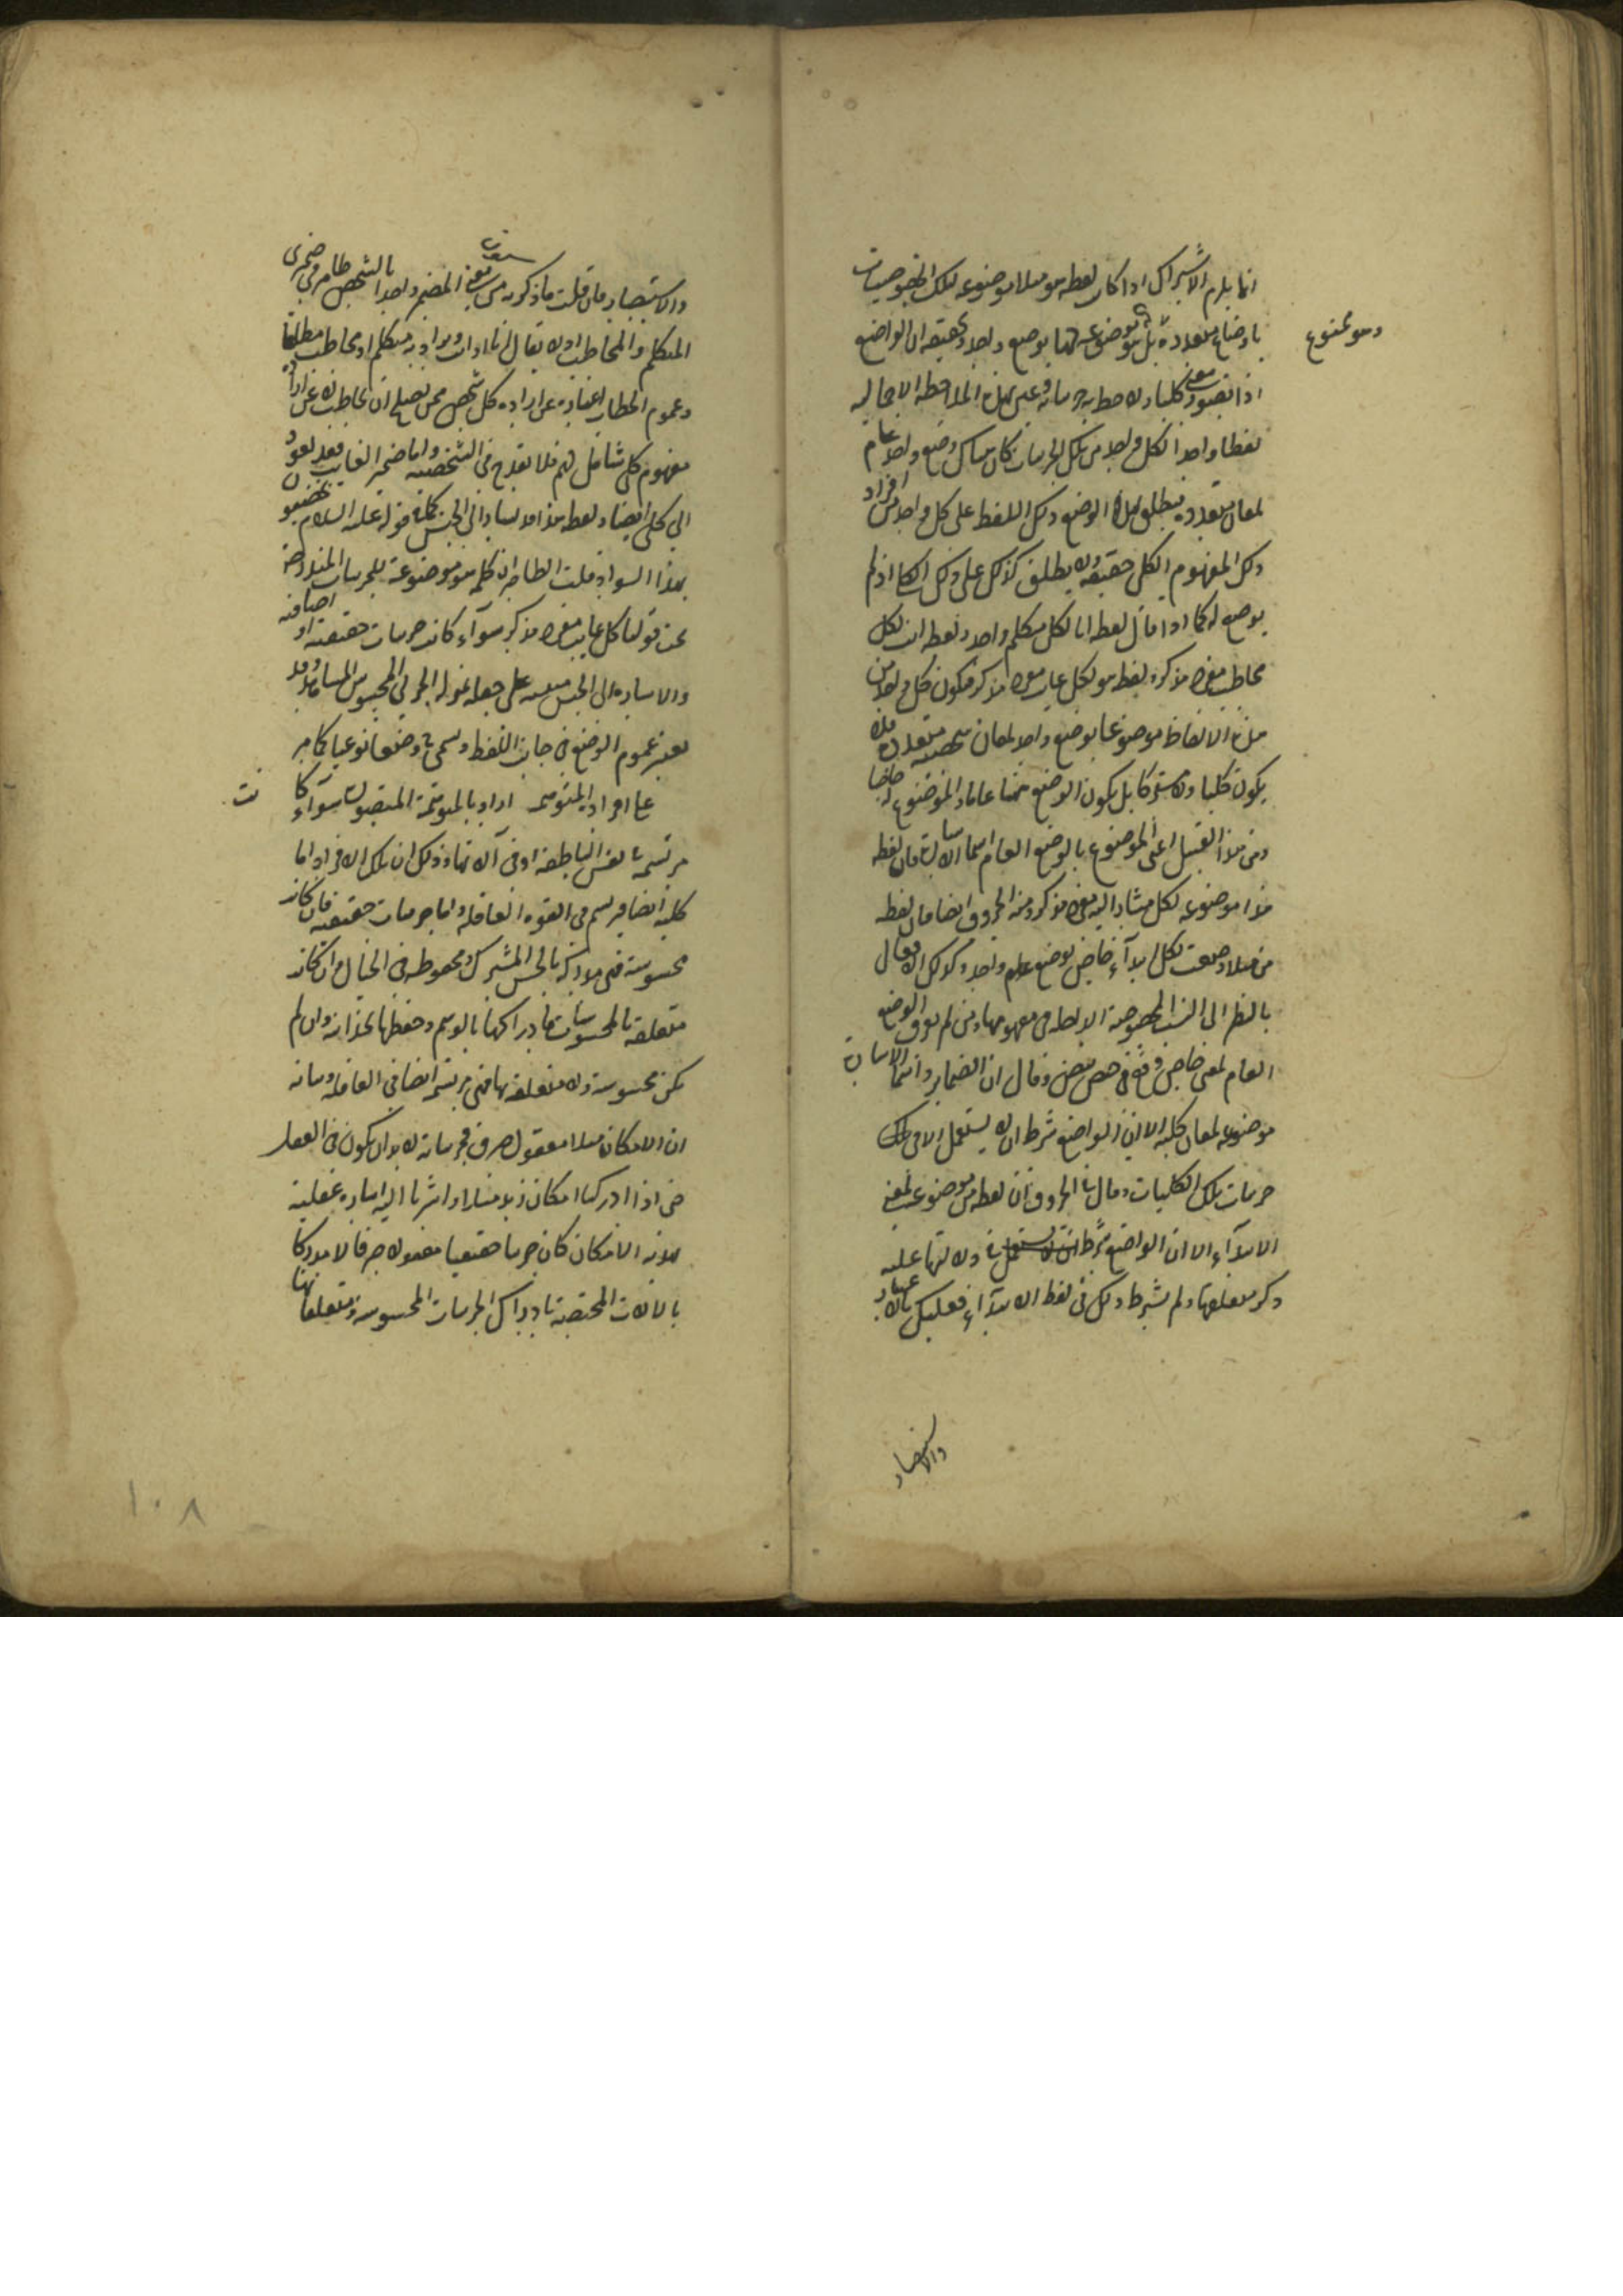 انما يلزم الاشتراك اذا كان لفظه هو مثلا موضوعه لتلك الخصوصيات
باوضاع متعددة بل موضوعه لها بوضع واحد وتحقيقه ان الواضع
وهو ممنوع
اذا تصور معنى كليا ولاحظ به جزئياته وعين بهذه الملاحظه الاجماليه
لفظا واحدا لكل واحد من تلك الجزئيات كان هناك وضع واحد عام
لمعان متعدده فيطلق بهذا الوضع ذلك اللفظ على كل واحد من افراد
ذلك المفهوم الكلى حقيقه ولا يطلق كذلك على ذلك الكلى اذ لم
يوضع له كما اذا قال لفظه انا لكل متكلم واحد ولفظه انت لكل
مخاطب مفرد مذكر ولفظ هو لكل غايب مفرد مذكر فيكون كل واحد من
هذه الالفاظ موضوعا بوضع واحد لمعان شخصيه متعدده فلا
يكون كليا ولا مشتركا بل يكون الوضع عاما والموضوع له خاصا
ومن هذا القبيل اعنى الموضوع بالوضع العام اسماء الاشاره فان لفظه
هذا موضوعه لكل مشار اليه مفرد مذكر ومنه الحروف ايضا فان لفظه
من مثلا وضعت لكل ابتداء خاص بوضع عام واحد وكذلك الافعال
بالنظر الى النسب المخصوصه الداخله فى مفهومها ومن لم يعرف الوضع
العام لمعنى خاص وقع فى حيص بيص وقال ان الضماير واسماء الاشارة
موضوعه لمعان كليه الا ان الواضع شرط ان لا يستعمل الا فى تلك
جزئيات تلك الكليات وقال فى الحروف ان لفظه من موضوعه لمعنى
الابتداء الا ان الواضع شرط فى دلالتها عليه
ذكر متعلقها ولم يشترط ذلك فى لفظ الابتداء فعليك بالاعتبار
والاستبصار
والاستبصار فان قلت ما ذكرته من كون معنى المضمر واحدا بالشخص ظاهر فى ضميرى
المتكلم والمخاطب اذ لا يقال انا او انت ويراد به متكلم او مخاطب مطلقا
وعموم الخطاب عبارة عن ارادة كل شخص ممن يصلح ان يخاطب لا عن ارادة
مفهوم كلى شامل لهم فلا يقدح فى الشخصيه واما ضمير الغايب فقد يعود
الى كلى ايضا ولفظه هذا قد يشار بها الى الجنس كما فى قوله عليه السلام
بهذا السواد قلت الظاهر ان كلمه هو موضوعه للجزئيات المندرجه
تحت قولنا كل غايب مفرد مذكر سواء كانت جزئيات حقيقيه او اضافيه
والاشاره الى الجنس مبنيه على جعله بمنزله الجزئى المحسوس المشاهد وقد
يعتبر عموم الوضع فى جانب اللفظ ويسمى وضعا نوعيا كما مر
على افراده المتوهمه اراد بالمتوهمة المتصوره سواء كا
نت
مرتسمة فى نفس الناطقه او فى آلاتها وذلك ان تلك الافراد اما
كليه ايضا فيرتسم فى القوه العاقله واما جزئيات حقيقيه فان كانت
محسوسة فهى مدركة بالحس المشترك ومحفوظه فى الخيال وان كانت
متعلقه بالمحسوسات فادراكها بالوهم وحفظها بخزانته وان لم
تكن محسوسة ولا متعلقه بها فهى مرتسمة ايضا فى العاقله وبيانه
ان الامكان مثلا معقول صرف فجزئياته لا بد ان يكون فى العقل
حتى اذا ادركنا امكان زيد مثلا او اشرنا اليه اشاره عقلية
بهذا الامكان كان جزئيا حقيقيا معقولا صرفا لا مدركا
بالالات المختصة بادراك الجزئيات المحسوسه ومتعلقاتها
١٠٨